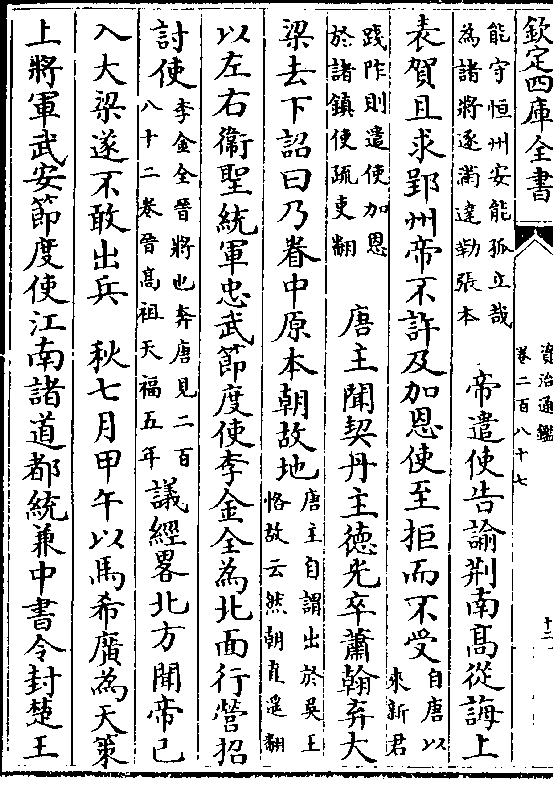 欽定四庫全書
資治通鑑
卷二百八十七
十三
能守恒州安能孤立哉
為諸將逐滿達勒張本
帝遣使告諭荆南髙從誨上
表賀且求郢州帝不許及加恩使至拒而不受
自唐以
來新君
踐阼則遣使加恩
於諸鎮使疏吏翻
唐主聞契丹主徳光卒蕭翰弃大
梁去下詔曰乃眷中原本朝故地
唐主自謂出於吳王
恪故云然朝直遥翻
以左右衞聖統軍忠武節度使李金全為北面行營招
討使
李金全晉將也奔唐見二百
八十二卷晉髙祖天福五年
議經畧北方聞帝已
入大梁遂不敢出兵 秋七月甲午以馬希廣為天策
上將軍武安節度使江南諸道都統兼中書令封楚王